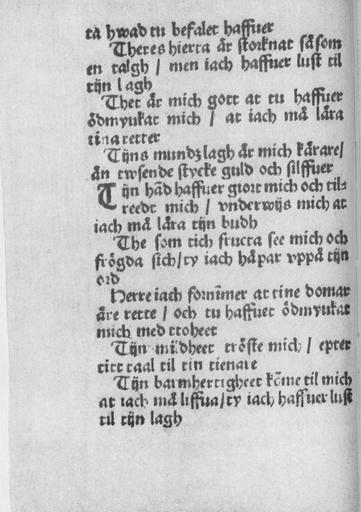 tu hwad tu befalet haffuer
Theres hierta är storknat såsom
en talgh / men iach haffuer lust til
tijn lagh
Thet är mich gott at tu haffuer
ödmyukat mich / at iach må lära
tina retter
Tijns mundz lagh är mich kärare /
än twsende stycke guld och silffuer
Tijn hãd haffuer giort mich och til-
reedt mich / vnderwijs mich at
iach må lära tijn budh
The som tich fructa see mich och
frögda sich / ty iach håpar vppå tijn
ord
Herre iach fornimmer at tine domar
äre rette / och tu haffuer ödmyukat
mich med troheet
Tijn mildheet tröste mich / epter
titt taal til tin tienare
Tijn barmhertigheet kõme til mich
at iach må liffua / ty iach haffuer lust
til tijn lagh